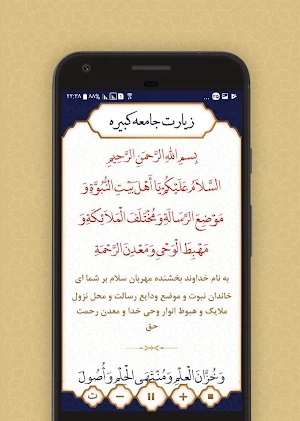 ۲۲:۳۸ ۸۸%
زیارت جامعه کبیره
بِسْمِ اللَّهِ الرَّحْمَنِ الرَّحِیمِ
السَّلَامُ عَلَیْکُمْ یَا أَهْلَ بَیْتِ النُّبُوَّةِ وَ
مَوْضِعَ الرِّسَالَةِ وَ مُخْتَلَفَ الْمَلَائِکَةِ وَ
مَهْبِطَ الْوَحْیِ وَ مَعْدِنَ الرَّحْمَةِ
به نام خداوند بخشنده مهربان سلام بر شما ای
خاندان نبوت و موضع ودایع رسالت و محل نزول
ملایک و هبوط انوار وحی خدا و معدن رحمت
حق
وَ خُزَّانَ الْعِلْمِ وَ مُنْتَهَی الْحِلْمِ وَ أُصُولَ
ت